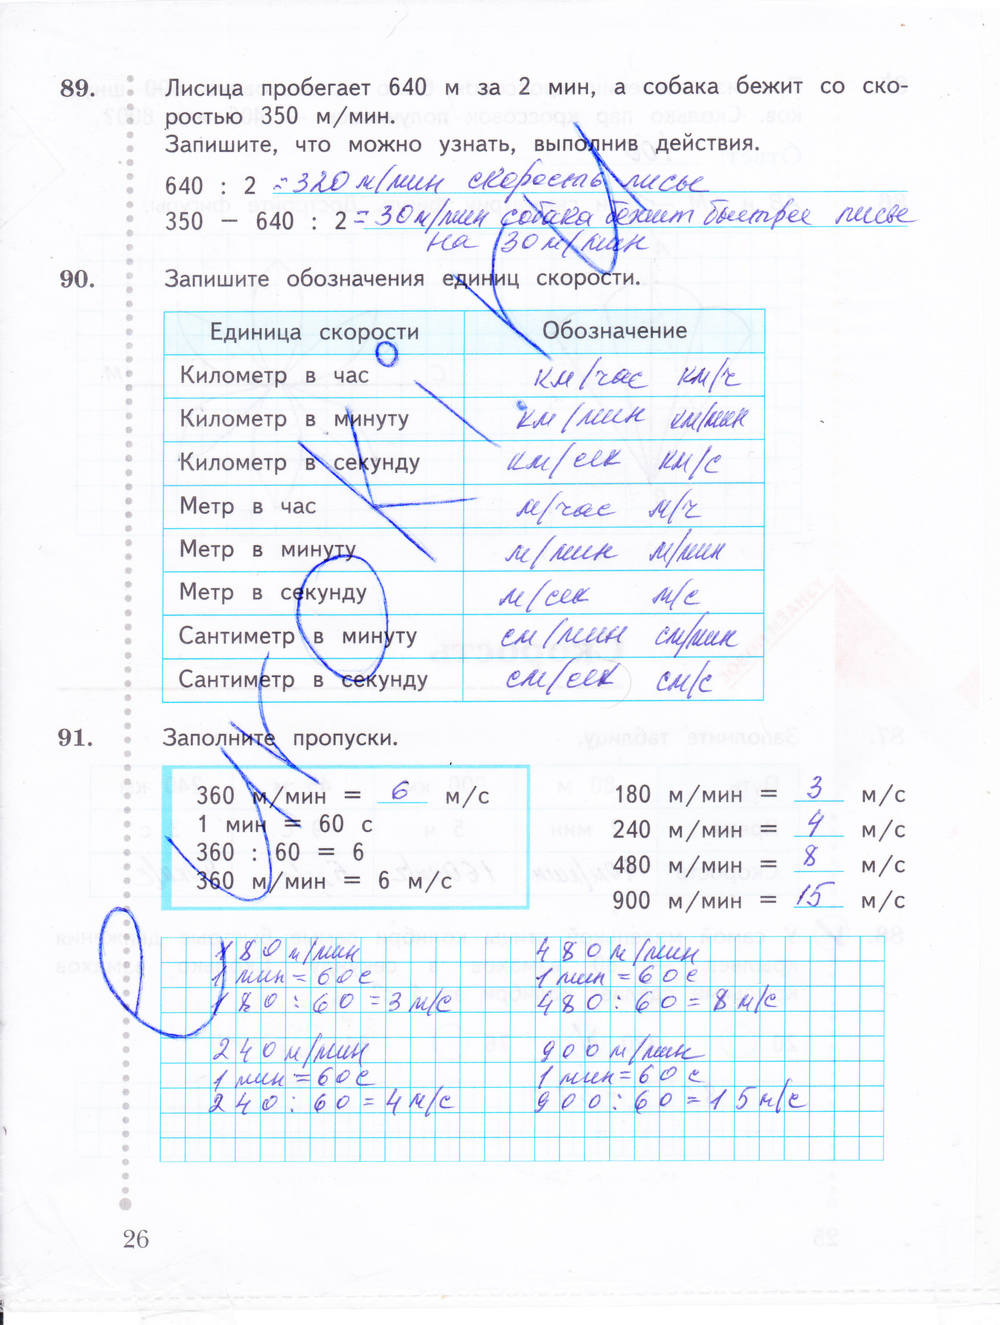 89. Лисица пробегает 640 м за 2 мин, а собака бежит со ско-
ростью 350 м/мин.
Запишите, что можно узнать, выполнив действия.
640 : 2 = 320 м/мин скорость лисы
350 − 640 : 2 = 30 м/мин собака бежит быстрее лисы
на 30 м/мин
90. Запишите обозначения единиц скорости.
Единица скорости Обозначение
Километр в час км/час км/ч
Километр в минуту км/мин км/мин
Километр в секунду км/сек км/с
Метр в час м/час м/ч
Метр в минуту м/мин м/мин
Метр в секунду м/сек м/с
Сантиметр в минуту см/мин см/мин
Сантиметр в секунду см/сек см/с
91. Заполните пропуски.
360 м/мин = 6 м/с
1 мин = 60 с
360 : 60 = 6
360 м/мин = 6 м/с
180 м/мин = 3 м/с
240 м/мин = 4 м/с
480 м/мин = 8 м/с
900 м/мин = 15 м/с
180 м/мин
1 мин = 60 с
180 : 60 = 3 м/с
480 м/мин
1 мин = 60 с
480 : 60 = 8 м/с
240 м/мин
1 мин = 60 с
240 : 60 = 4 м/с
900 м/мин
1 мин = 60 с
900 : 60 = 15 м/с
26